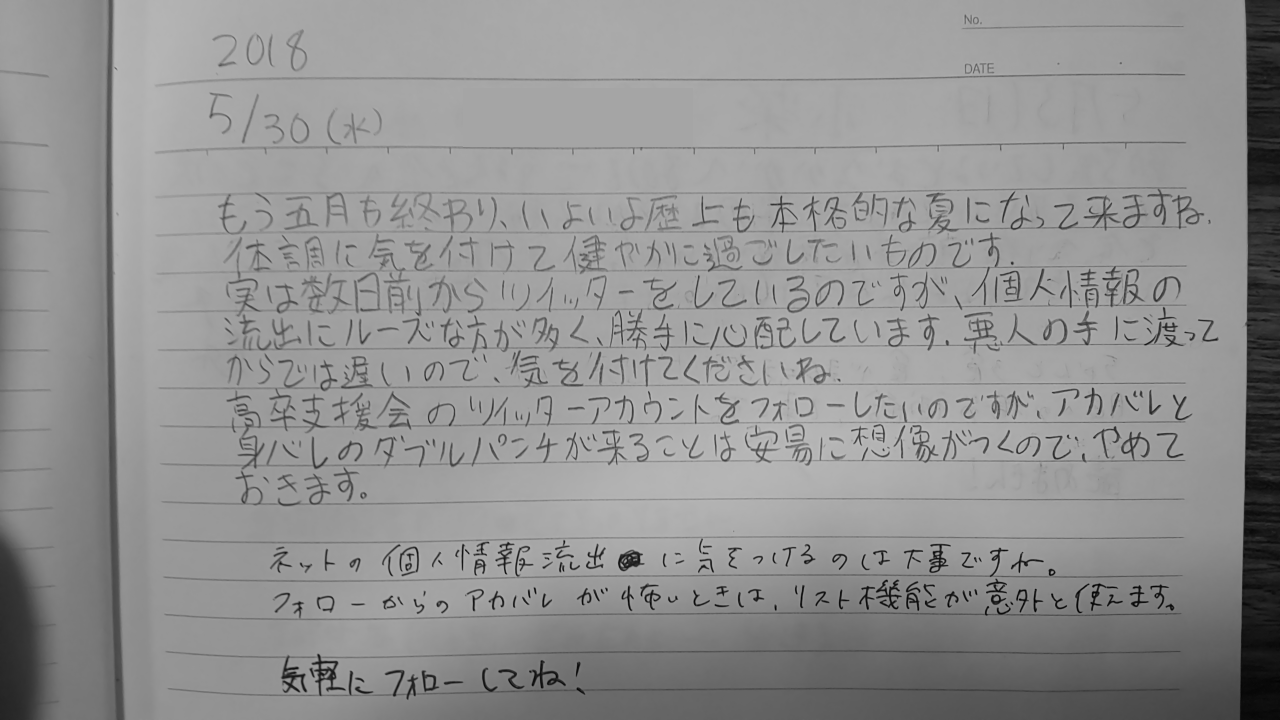 No.
2018
DATE
5/30(水)
もう五月も終わり、いよいよ歴上も本格的な夏になって来ますね.
体調に気を付けて健やかに過ごしたいものです.
実は数日前からツイッターをしているのですが、個人情報の
流出にルーズな方が多く、勝手に心配しています.悪人の手に渡って
からでは遅いので、気を付けてくださいね.
高卒支援会のツイッターアカウントをフォローしたいのですが、アカバレと
身バレのダブルパンチが来ることは安易に想像がつくので、やめて
おきます。
ネットの個人情報流出に気をつけるのは大事ですね。
フォローからのアカバレが怖いときは、リスト機能が意外と使えます。
気軽にフォローしてね!